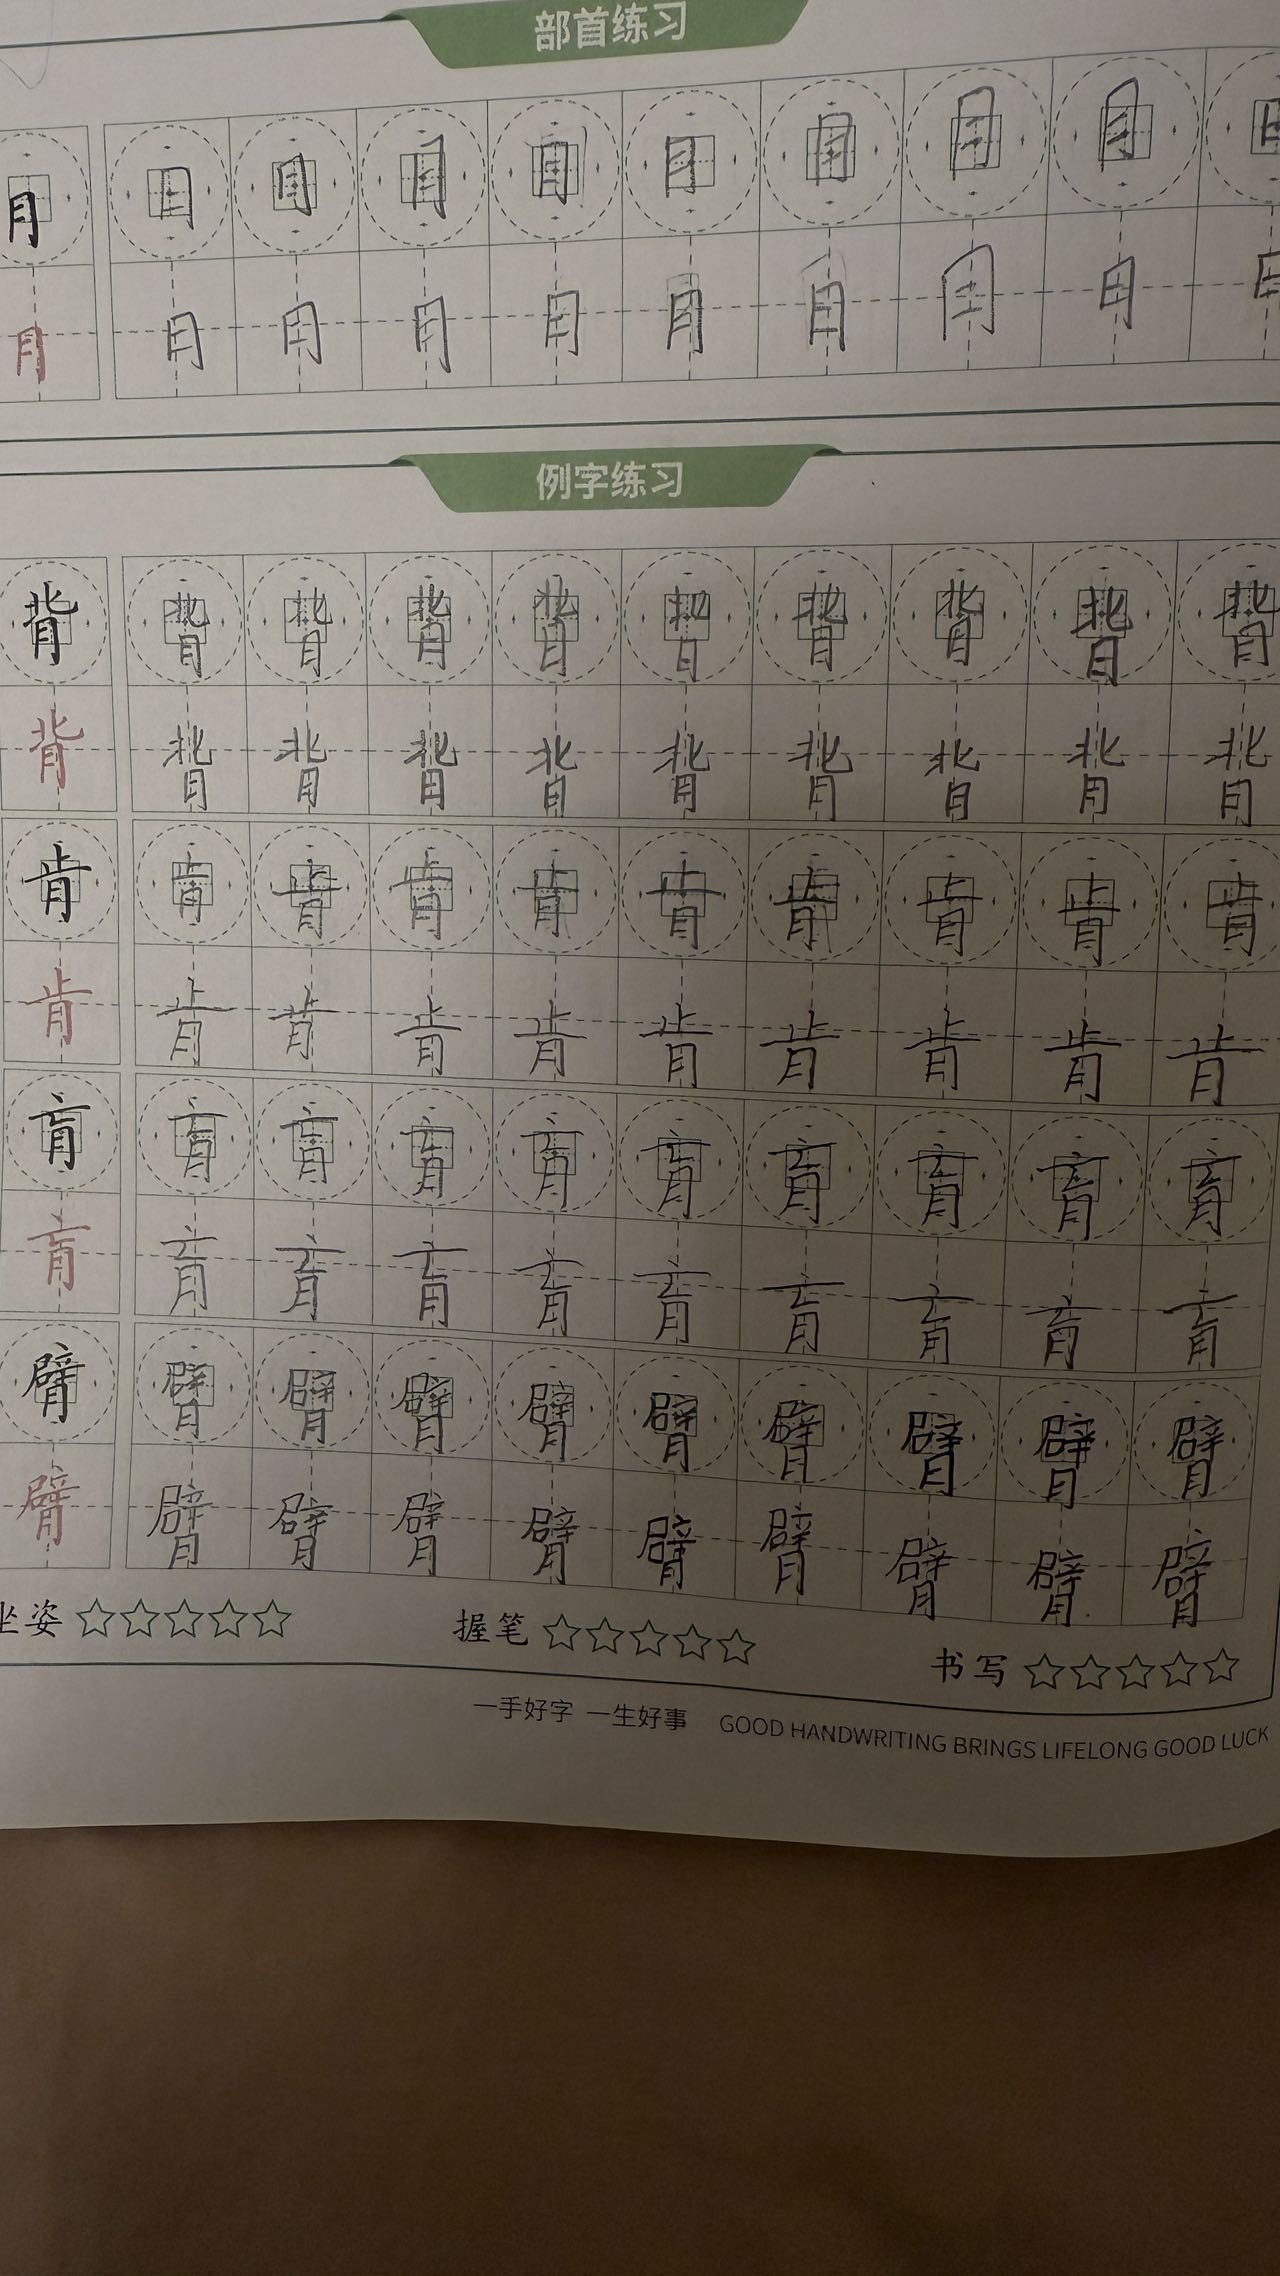 部首练习
月 月 月 月 月 月 月 月 月 月
月 月 月 月 月 月 月 月 月 月
例字练习
背 背 背 背 背 背 背 背 背 背
背 背 背 背 背 背 背 背 背 背
肯 肯 肯 肯 肯 肯 肯 肯 肯 肯
肯 肯 肯 肯 肯 肯 肯 肯 肯 肯
肓 肓 肓 肓 肓 肓 肓 肓 肓 肓
肓 肓 肓 肓 肓 肓 肓 肓 肓 肓
臂 臂 臂 臂 臂 臂 臂 臂 臂 臂
臂 臂 臂 臂 臂 臂 臂 臂 臂 臂
坐姿 ☆☆☆☆☆ 握笔 ☆☆☆☆☆ 书写 ☆☆☆☆☆
一手好字 一生好事 GOOD HANDWRITING BRINGS LIFELONG GOOD LUCK